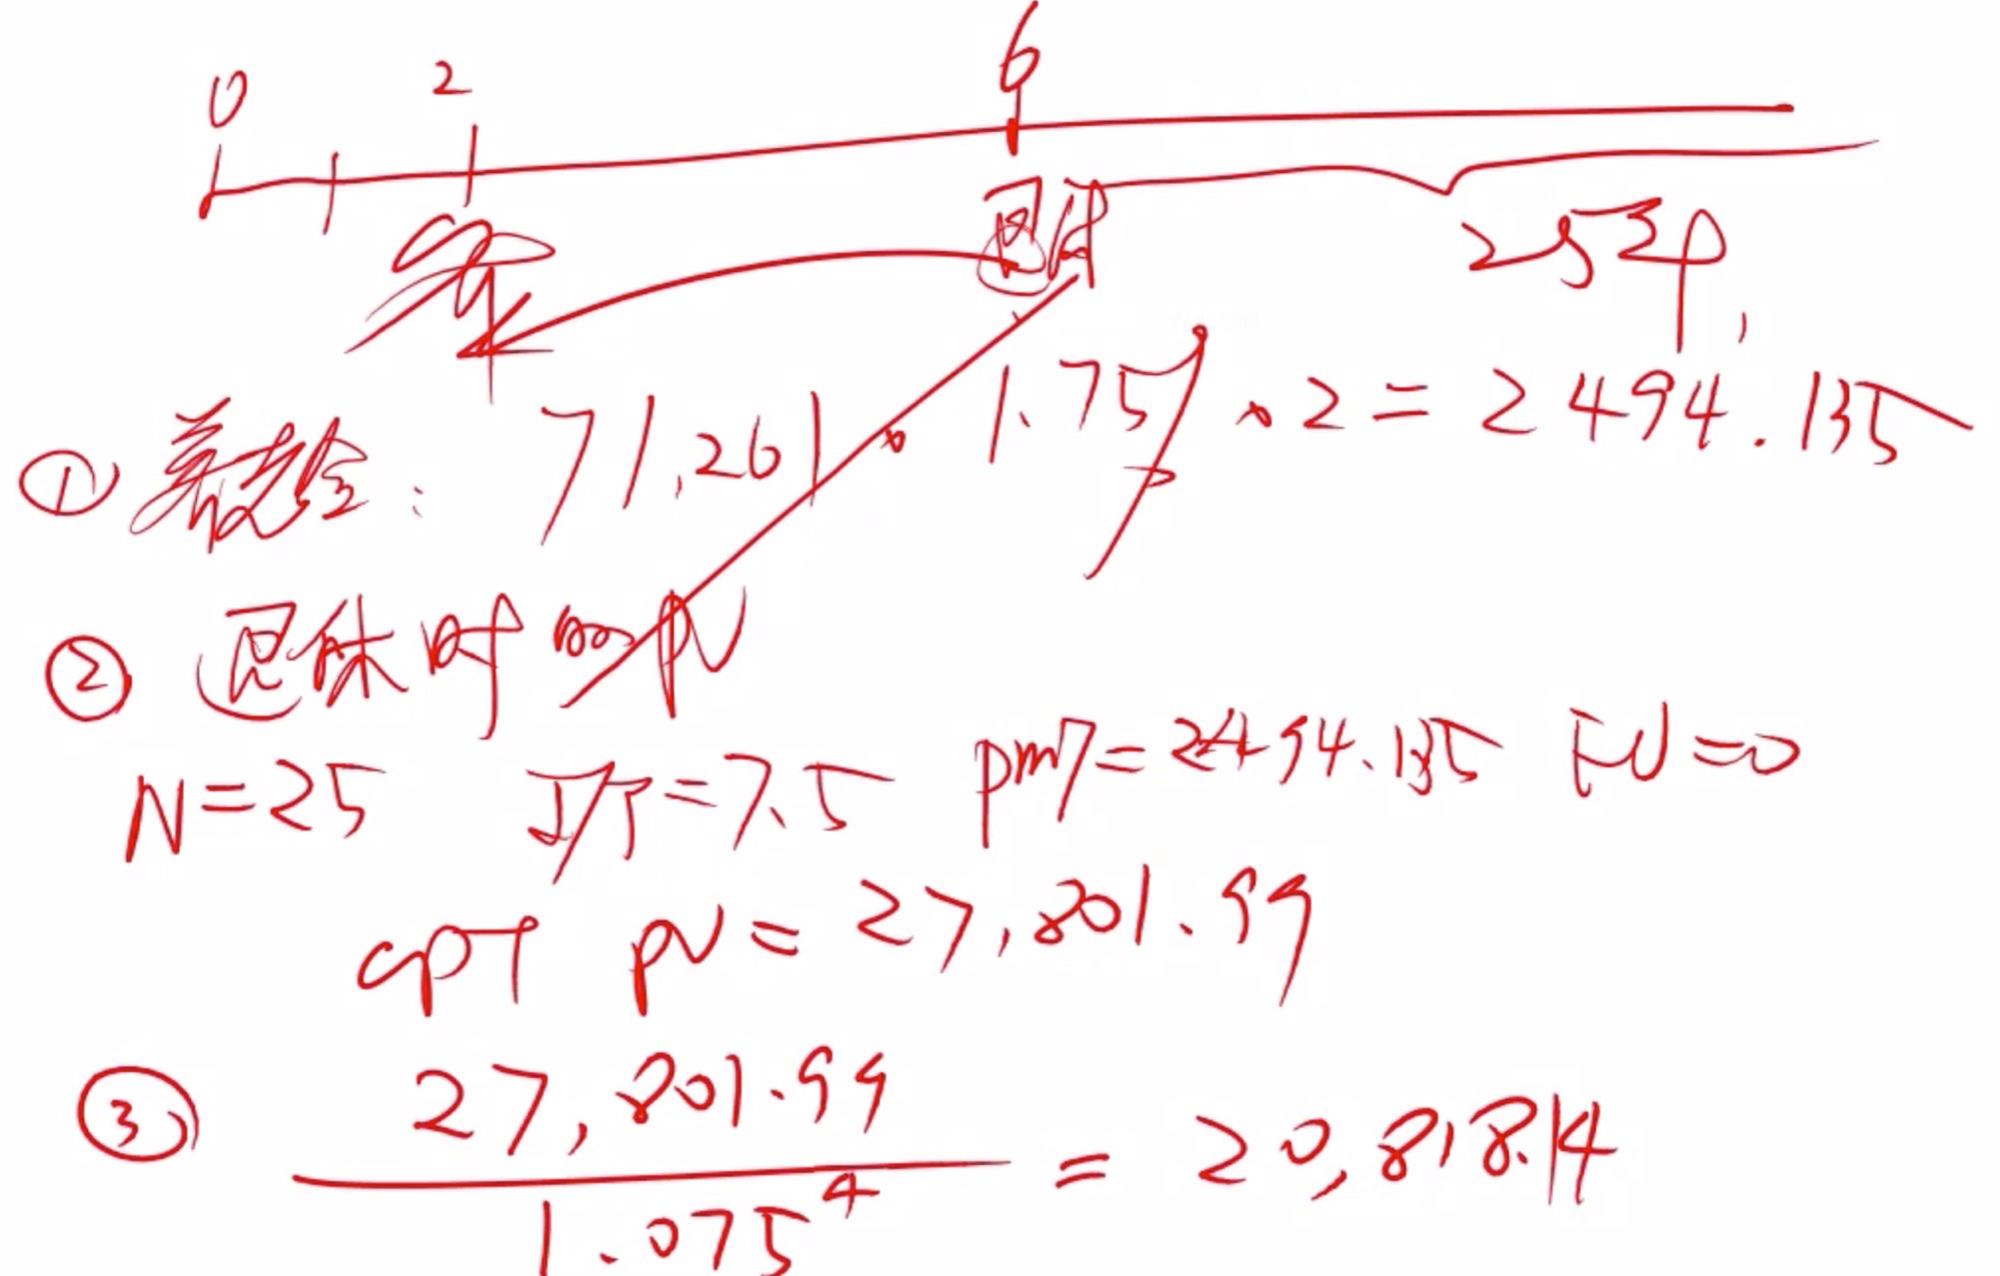 0 2 6
退休 25年
① 养老金: 71,261 × 1.75% × 2 = 2494.135
② 退休时的PV
N=25 I/Y=7.5 PMT=2494.135 FV=0
CPT PV = 27,801.99
③ 27,801.99
= 20,818.14
1.075⁴